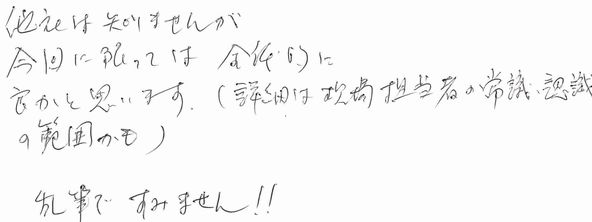 他社は知りませんが
今回に限っては 全体的に
良かと思います。(詳細は現場担当者の常識、認識
の範囲かも)
乱筆で すみません!!